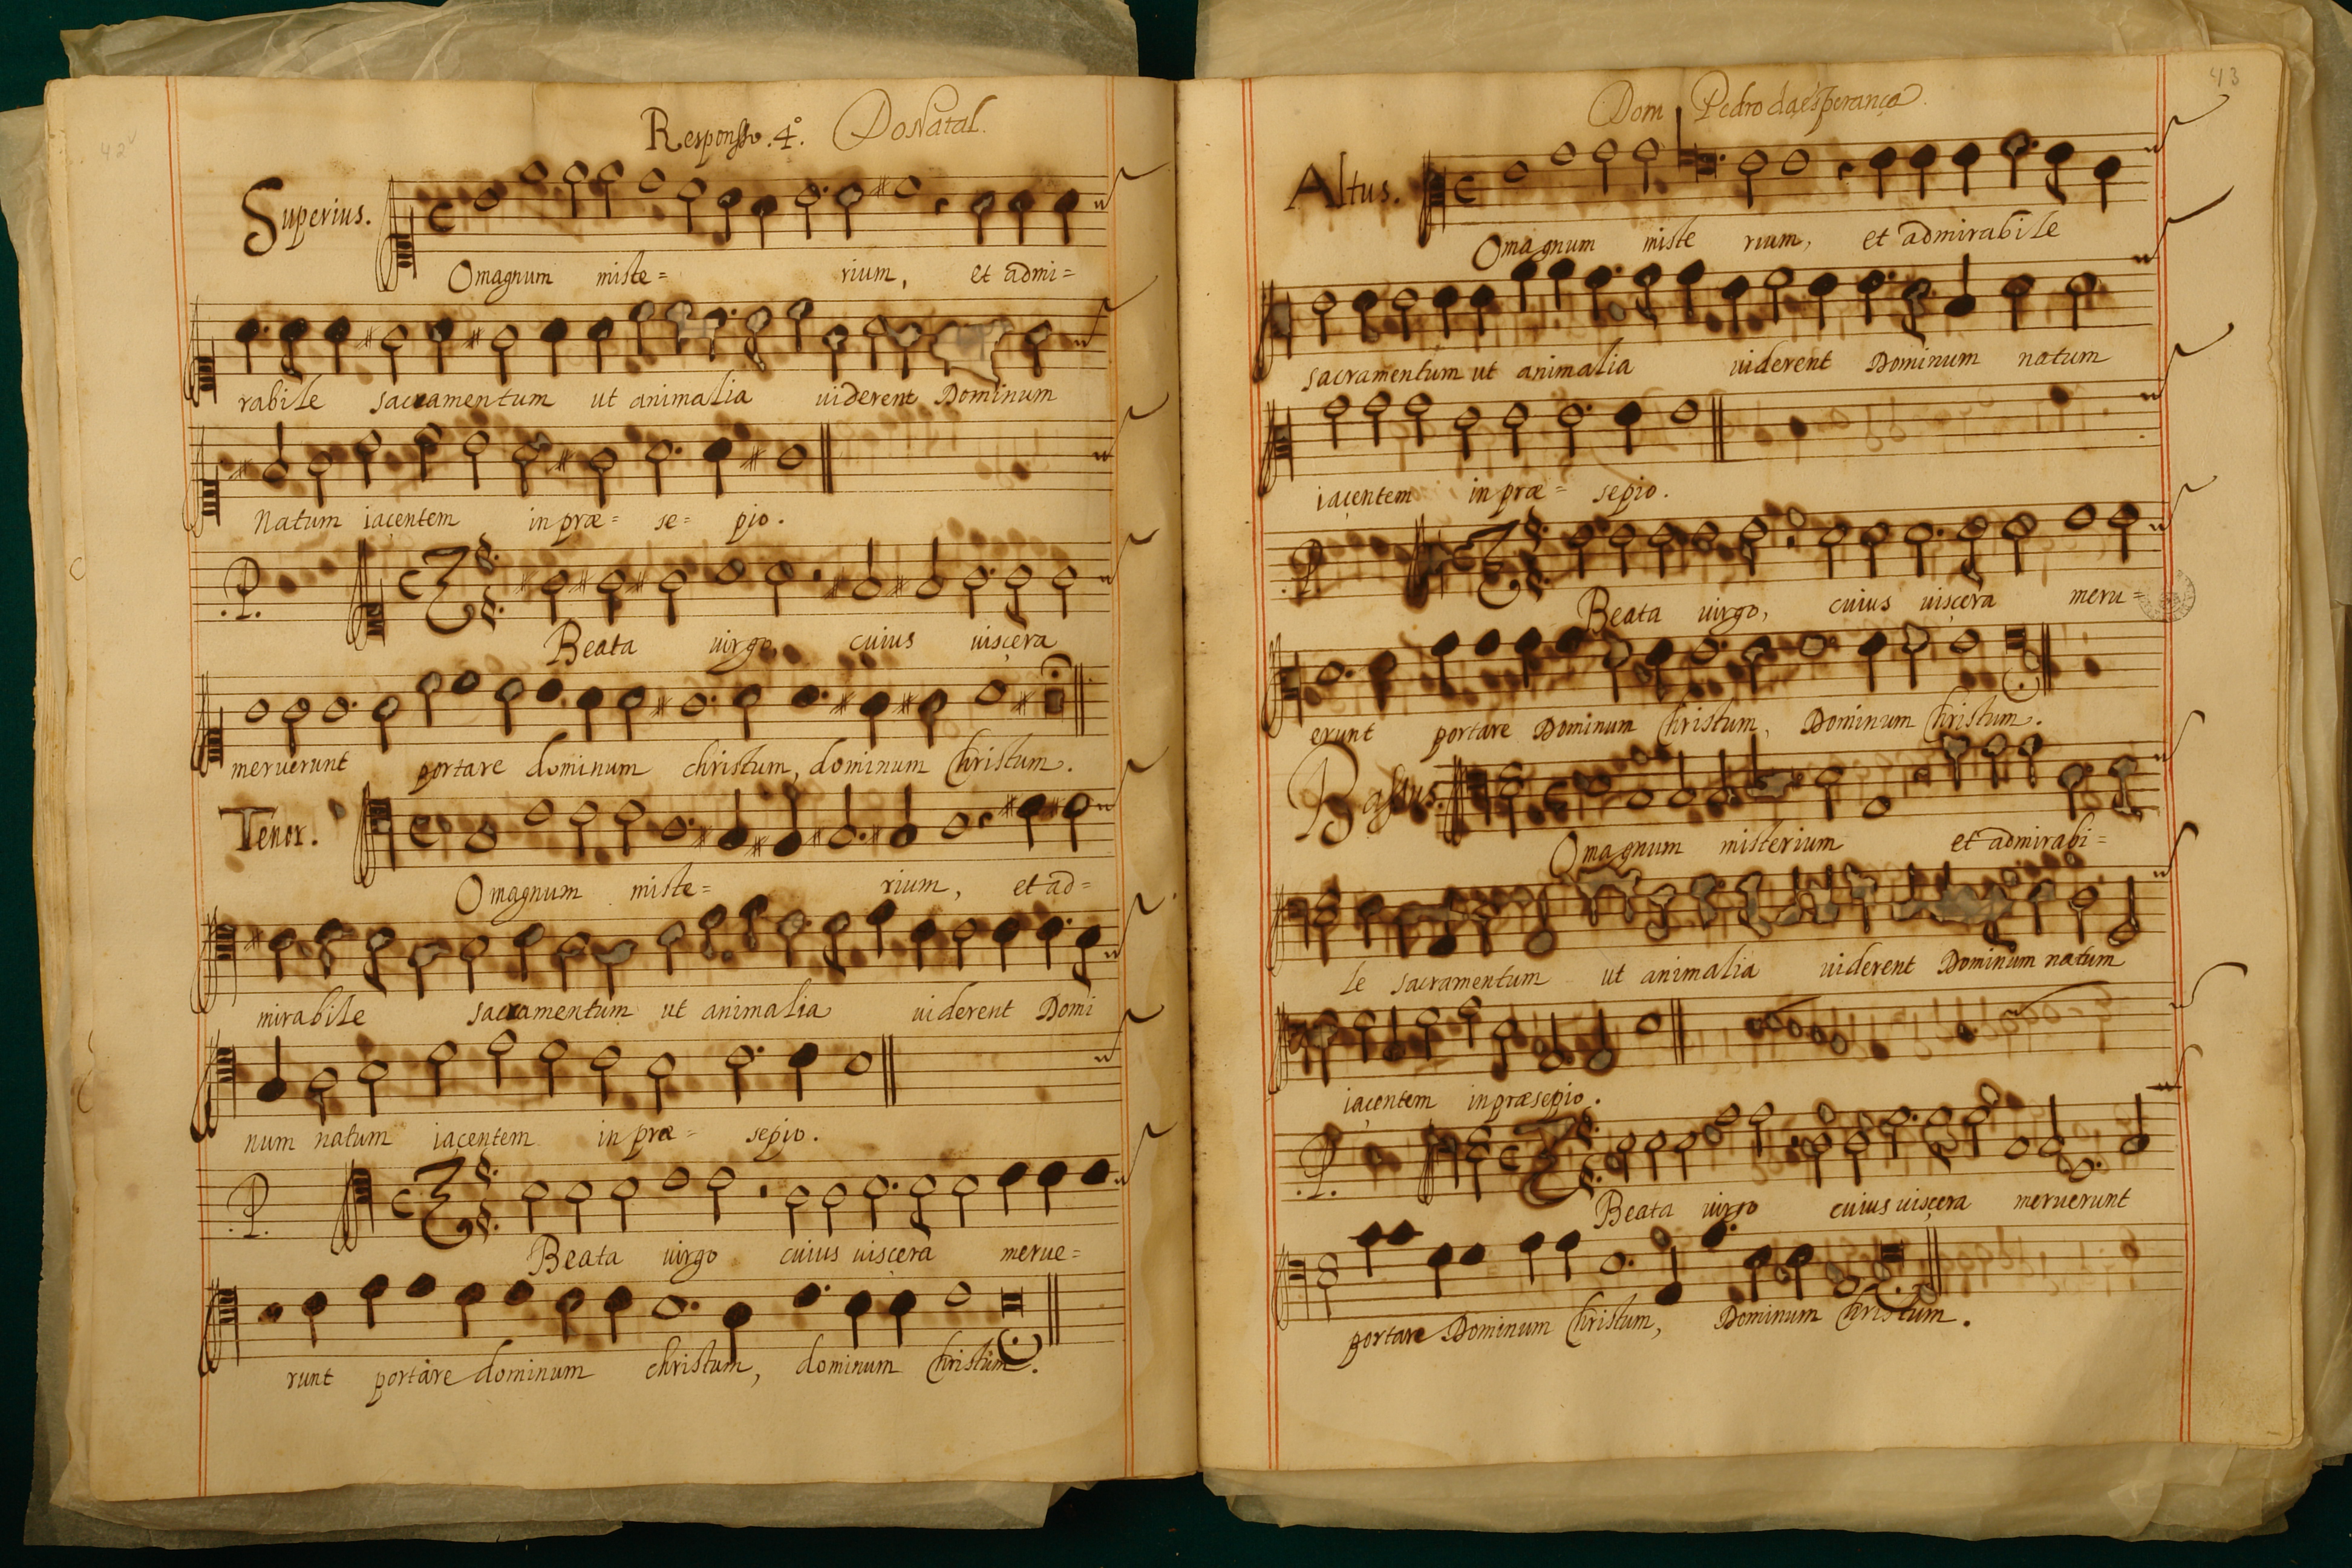 42v
Responsso .4º. Do Natal.
Superius.
O magnum miste= rium, et admi=
rabile sacramentum ut animalia uiderent Dominum
Natum iaçentem in præ= se= pio.
.P.
Beata uirgo, cuius uisçera
meruerunt portare dominum christum, dominum Christum.
Tenor.
O magnum miste= rium, et ad=
mirabile sacramentum ut animalia uiderent Domi
num natum iaçentem in præ= sepio.
.P.
Beata uirgo cuius uisçera merue=
runt portare dominum christum, dominum Christum.
43
Dom Pedro da esperança.
Altus.
O magnum miste rium, et admirabile
sacramentum ut animalia uiderent Dominum natum
iaçentem in præ= sepio.
.P.
Beata uirgo, cuius uisçera meru=
erunt portare Dominum Christum, Dominum Christum.
Bassus.
O magnum misterium et admirabi=
le sacramentum ut animalia uiderent Dominum natum
iaçentem in præsepio.
.P.
Beata uirgo cuius uisçera meruerunt
portare Dominum Christum, Dominum Christum.